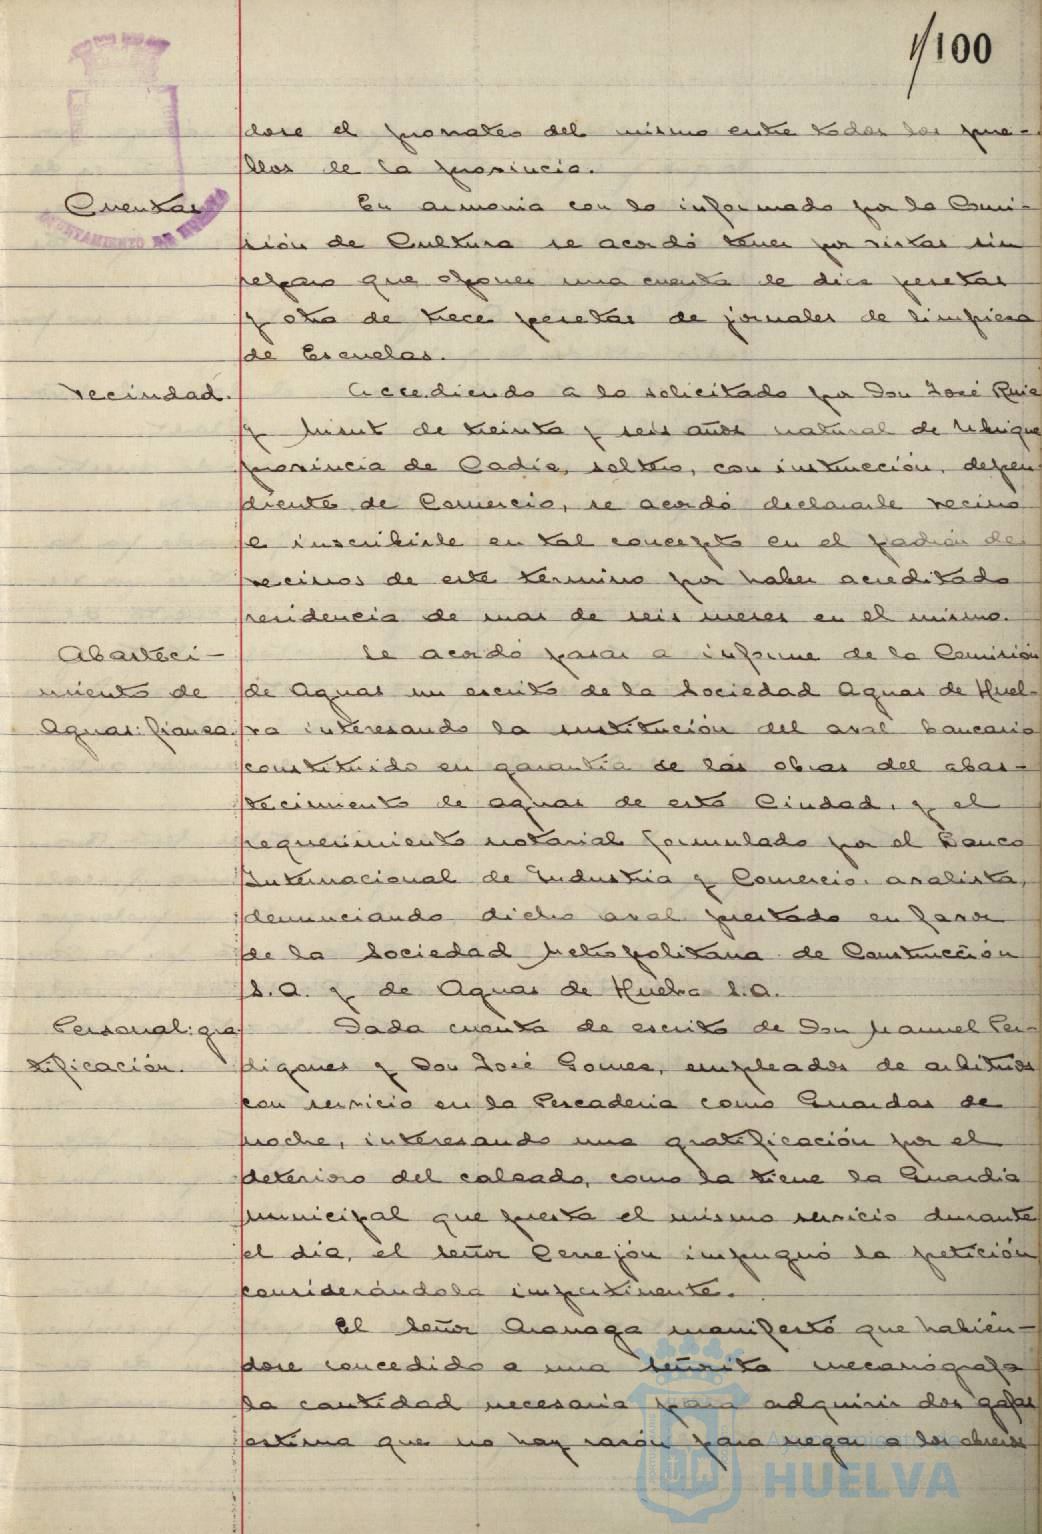 1/100
dose el prorrateo del mismo entre todos los pue-
blos de la provincia.
AYUNTAMIENTO DE HUELVA
Cuentas
En armonia con lo informado por la Comi-
sión de Cultura se acordó tener por vistas sin
reparo que oponer una cuenta de diez pesetas
y otra de trece pesetas de jornales de limpieza
de Escuelas.
Vecindad.
Accediendo a lo solicitado por Don José Ruiz
y de treinta y seis años natural de Ubrique
provincia de Cadiz, soltero, con instrucción, depen
diente de Comercio, se acordó declararle vecino
e inscribirle en tal concepto en el padrón de
vecinos de este termino por haber acreditado
residencia de mas de seis meses en el mismo.
Abasteci-
miento de
Aguas: fianza.
Se acordó pasar a informe de la Comisión
de Aguas un escrito de la Sociedad Aguas de Huel-
va interesando la sustitución del aval bancario
constituido en garantia de las obras del abas-
tecimiento de aguas de esta Ciudad, y el
requerimiento notarial formulado por el Banco
Internacional de Industria y Comercio, avalista,
denunciando dicho aval prestado en favor
de la Sociedad Metropolitana de Construcción
S.A. y de Aguas de Huelva S.A.
Personal: gra
tificación.
Dada cuenta de escrito de Don Manuel Per-
digones y Don José Gomez, empleados de arbitrios
con servicio en la Pescaderia como Guardas de
noche, interesando una gratificación por el
deterioro del calzado, como la tiene la Guardia
Municipal que presta el mismo servicio durante
el dia, el señor Cerrejón impugnó la petición
considerándola impertinente.
El señor Aranaga manifestó que habién-
dose concedido a una señorita mecanógrafa
la cantidad necesaria para adquirir dos gafas
estima que no hay razón para negar a los obreros
Ayuntamiento de
HUELVA